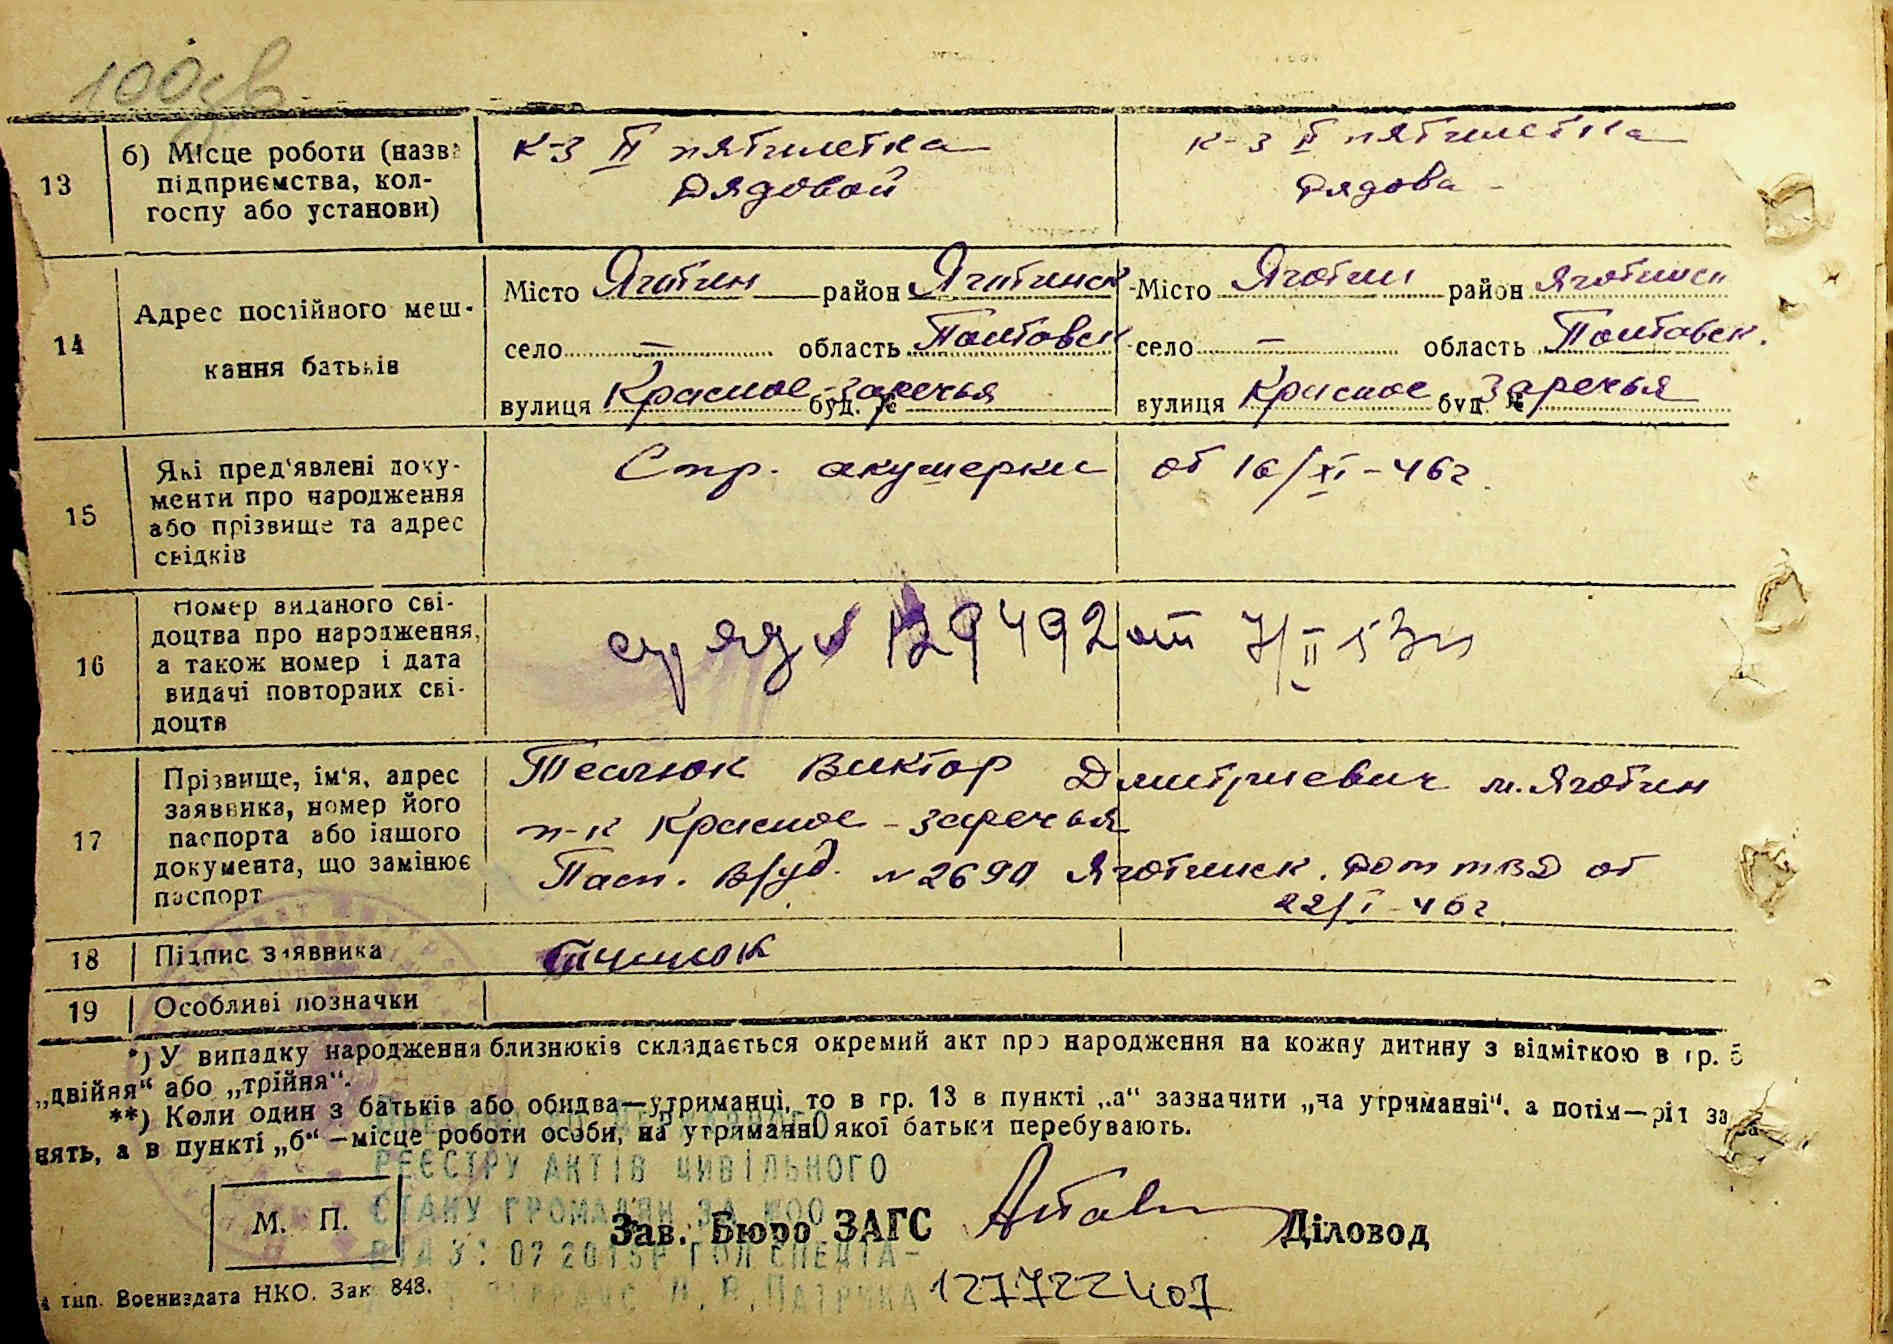 100
13
б) Місце роботи (назва
підприємства, кол-
госпу або установи)
к-з II пятилетка
Рядовой
к-з II пятилетка
Рядова
14
Адрес постійного меш-
кання батьків
Місто Яготин район Яготинск
село — область Полтавск
вулиця Красное-заречья буд. №
Місто Яготин район Яготинск
село — область Полтавск.
вулиця Красное Заречья буд. №
15
Які пред'явлені доку-
менти про народження
або прізвище та адрес
свідків
Спр. акушерки от 16/XI-46г.
16
Номер виданого сві-
доцтва про народження,
а також номер і дата
видачі повторних сві-
доцтв
129492 от 7/II 53
17
Прізвище, ім'я, адрес
заявника, номер його
паспорта або іншого
документа, що замінює
паспорт
Виктор Дмитриевич м. Яготин
п-к Красное-заречья
Пасп. в/уд. № 2690 Яготинск. от
22/I-46г.
18
Підпис заявника
19
Особливі позначки
*) У випадку народження близнюків складається окремий акт про народження на кожну дитину з відміткою в гр. 5
„двійня“ або „трійня“.
**) Коли один з батьків або обидва—утриманці, то в гр. 13 в пункті „а“ зазначити „на утриманні“, а потім—рід за
нять, а в пункті „б“—місце роботи особи, на утриманні якої батьки перебувають.
РЕЄСТРУ АКТІВ ЦИВІЛЬНОГО
СТАНУ ГРОМАДЯН ЗА
М. П.
Зав. Бюро ЗАГС
Діловод
07 2015Р ГОЛ СПЕЦІА-
тип. Воениздата НКО. Зак. 848.
127722407